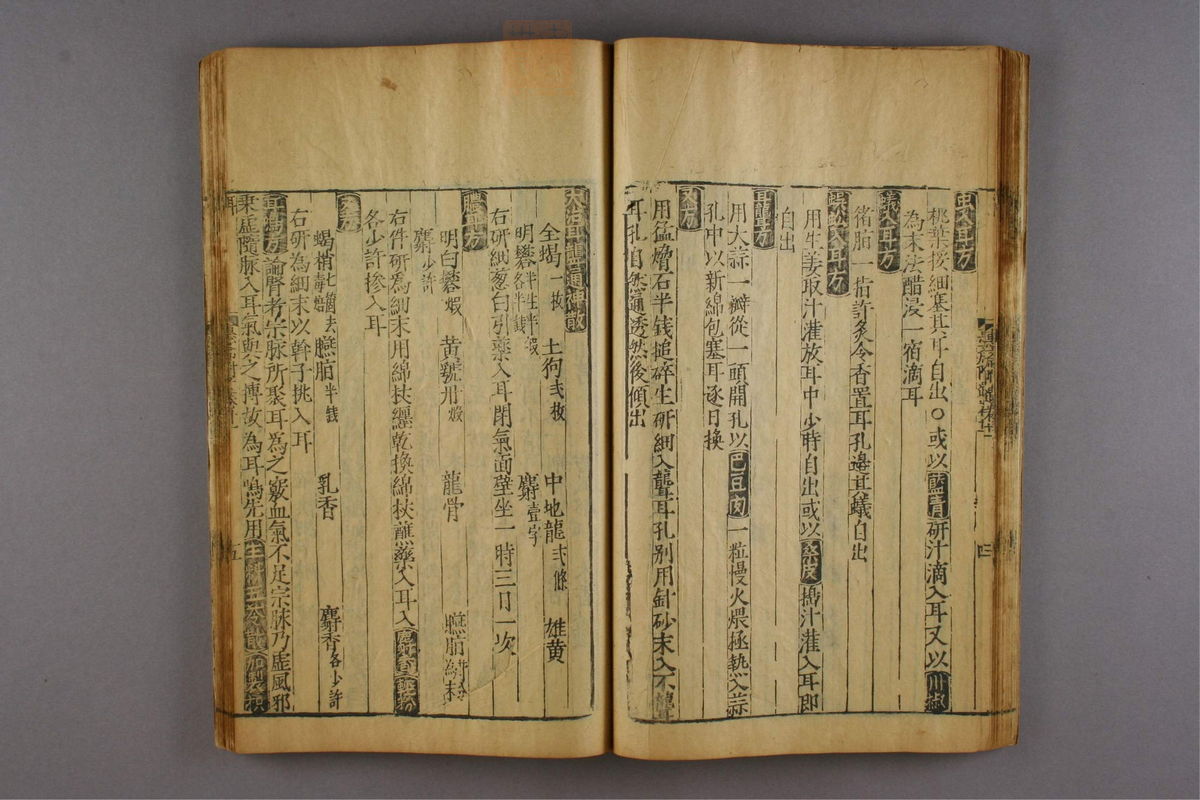 虫入耳方
桃葉挼細塞其耳自出○或以藍青研汁滴入耳又以川椒
為末法醋浸一宿滴耳
蟻入耳方
猪脂一指許炙令香置耳孔邊其蟻自出
蜈蚣入耳方
用生姜取汁灌放耳中少時自出或以桑皮搗汁灌入耳即
自出
耳聾方
用大蒜一瓣從一頭開孔以巴豆肉一粒慢火煨極熱入蒜
孔中以新綿包塞耳逐日換
又方
用猛礠石半錢搥碎生研細入聾耳孔别用針砂末入不聾
耳孔自然通透然後傾出
大治耳聾通神散
全蝎一枚 土狗弍枚 中地龍弍條 雄黄
明礬半生半煆各半錢 麝壹字
右研細葱白引藥入耳閉氣面壁坐一時三日一次
聤耳方
明白礬煆 黄號丹煆 龍骨 臙脂
麝少許
右件研爲細末用綿杖纒乾換綿杖蘸藥入耳入麝香
各少許摻入耳
又方
蝎梢七箇去毒焙 臙脂半錢 乳香 麝香各少許
右研為細末以斡子挑入耳
耳鳴方論腎者宗脉所聚耳為之竅血氣不足宗脉乃虚風邪
乗虚隨脉入耳氣與之摶故為耳鳴先用五苓散
五